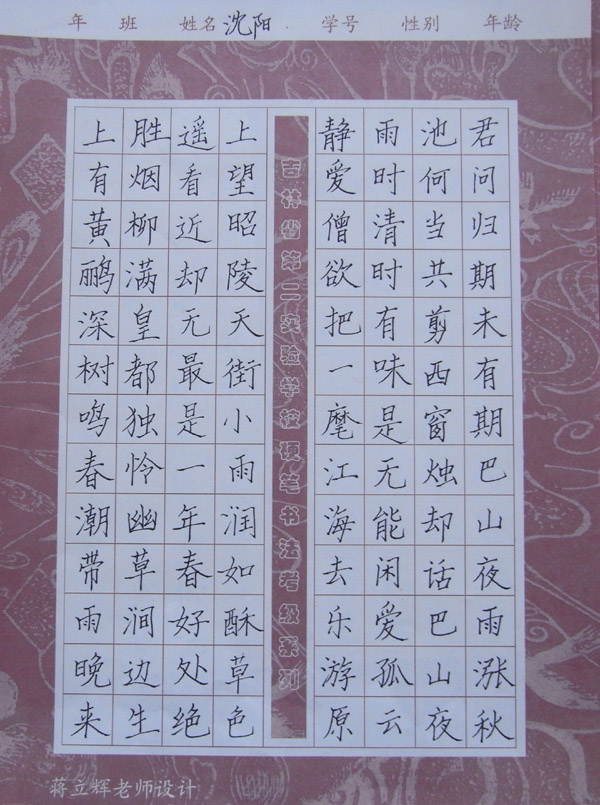 年 班 姓名 沈阳 学号 性别 年龄
君问归期未有期巴山夜雨涨秋
池何当共剪西窗烛却话巴山夜
雨时清时有味是无能闲爱孤云
静爱僧欲把一麾江海去乐游原
吉林省第二实验学校硬笔书法考级系列
上望昭陵天街小雨润如酥草色
遥看近却无最是一年春好处绝
胜烟柳满皇都独怜幽草涧边生
上有黄鹂深树鸣春潮带雨晚来
蒋立辉老师设计